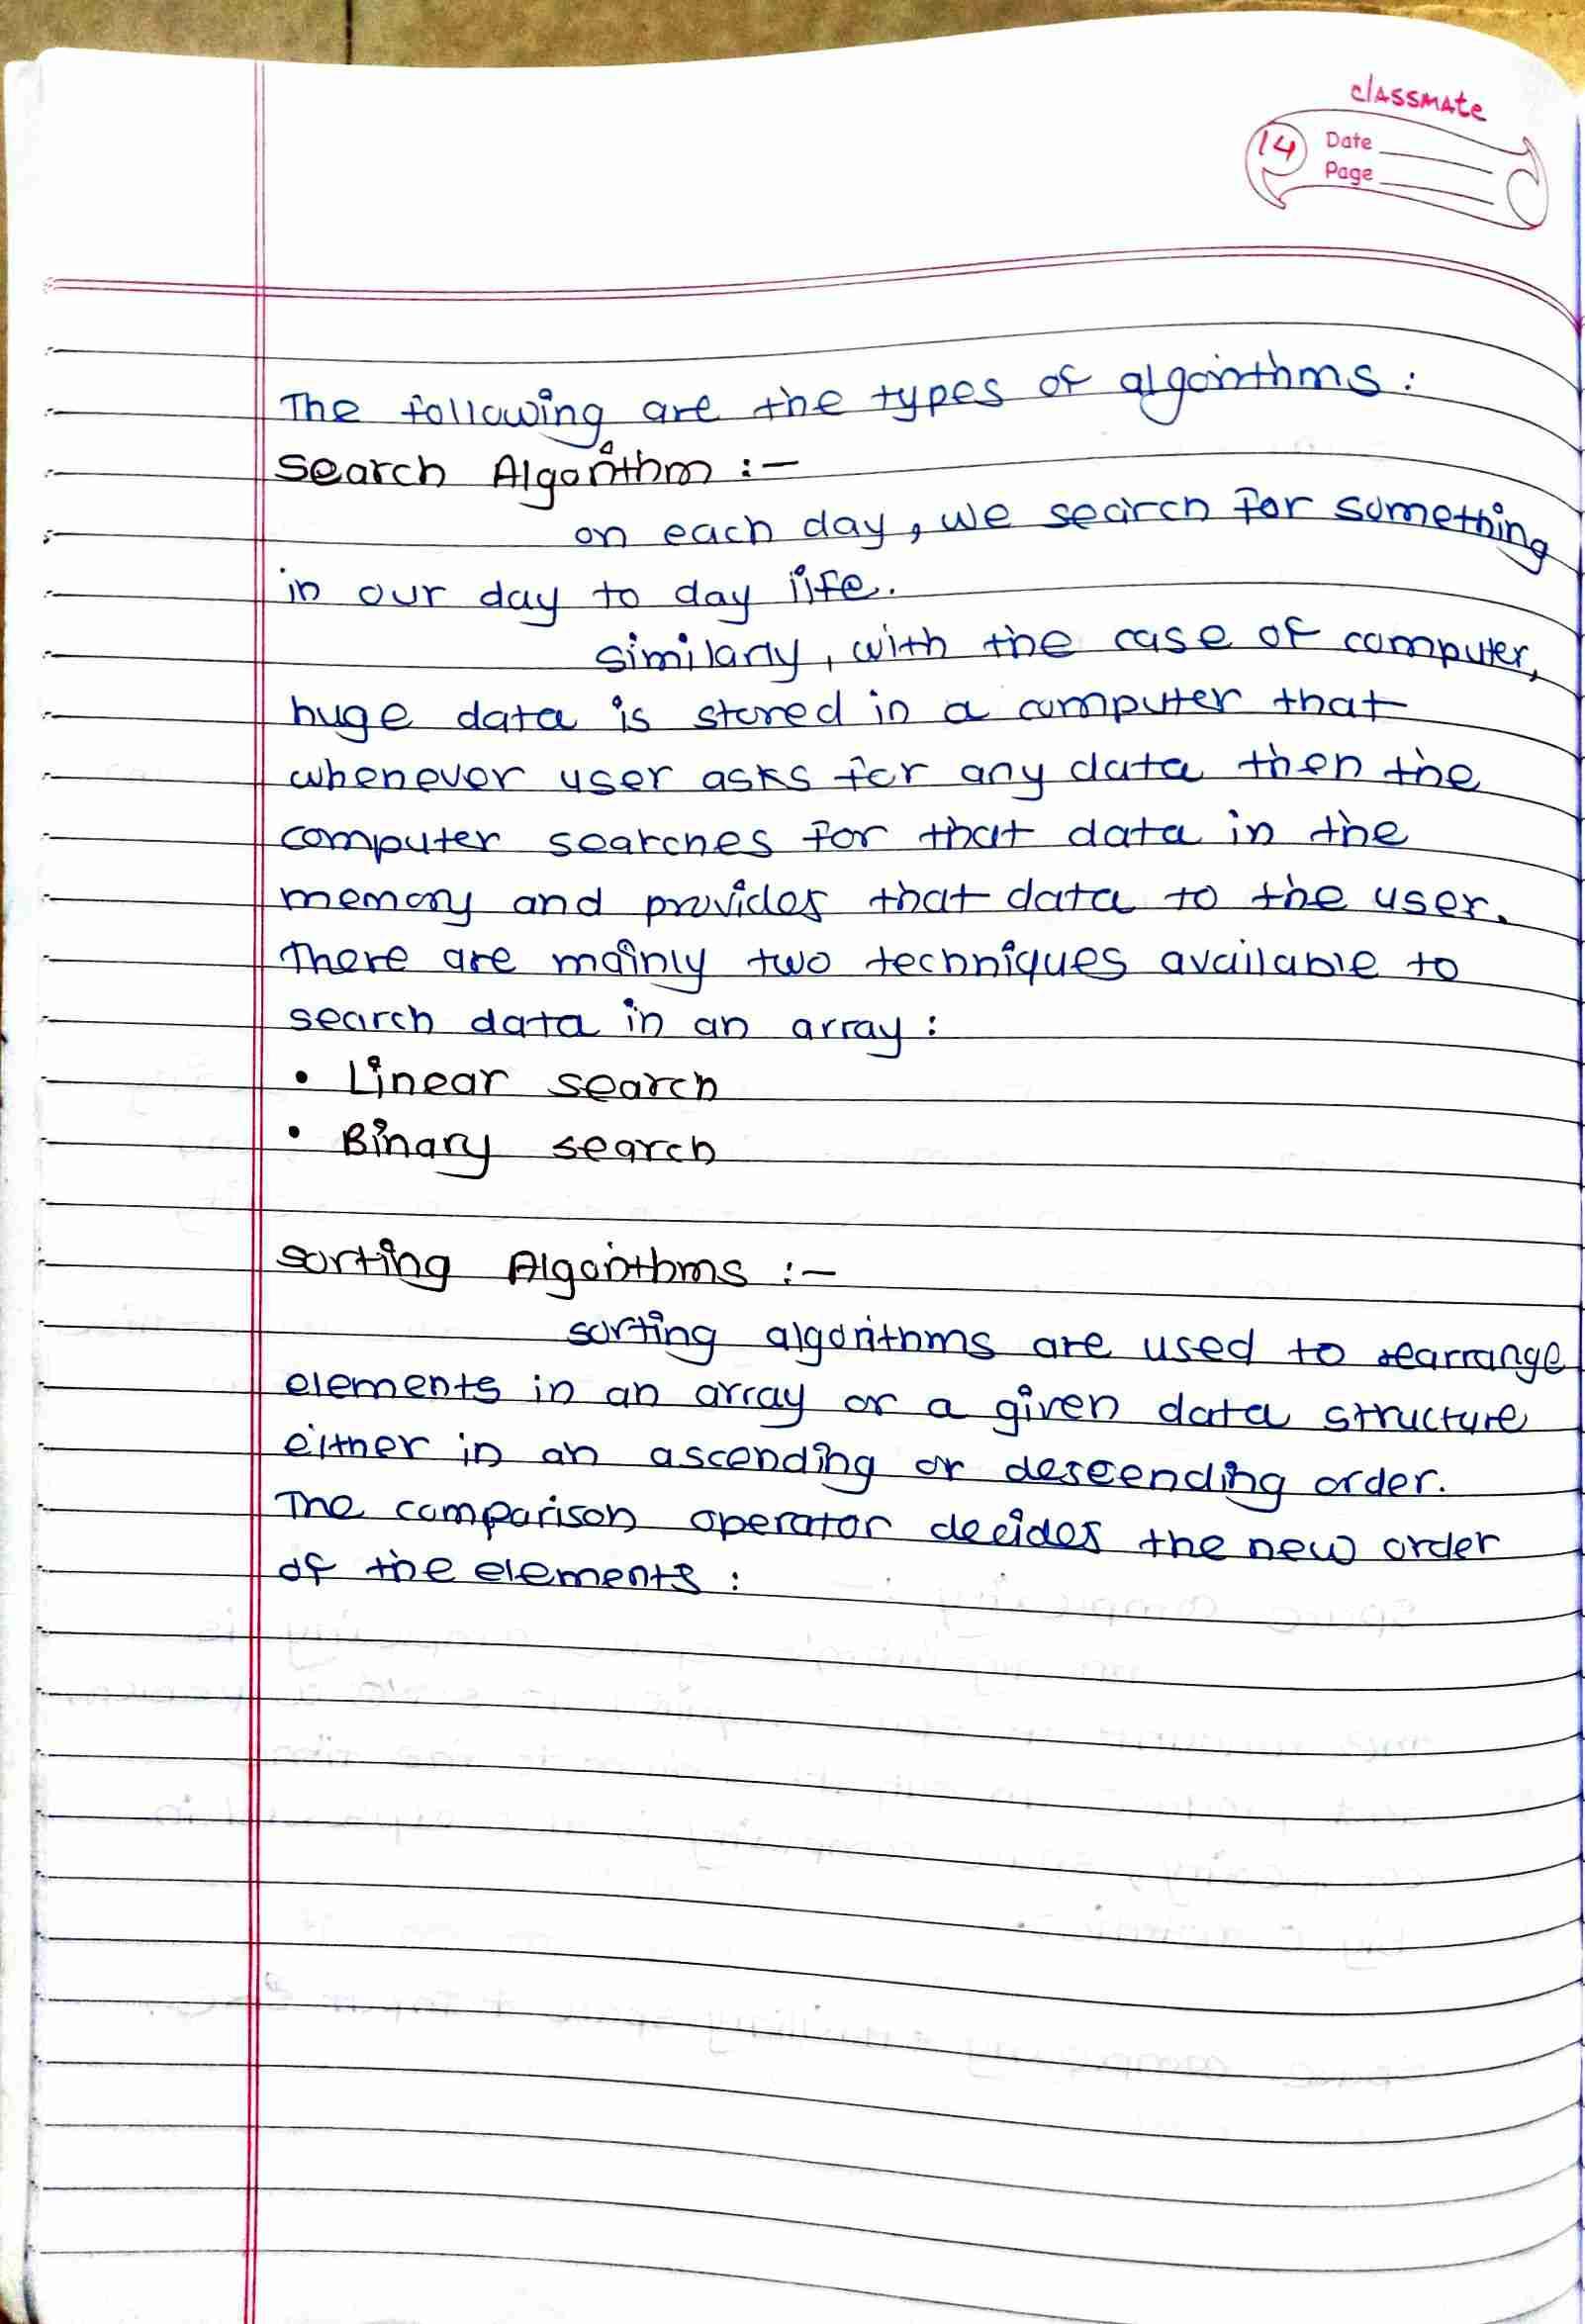 classmate
14 Date
Page
The following are the types of algorithms :
Search Algorithm :-
on each day, we search for something
in our day to day life.
similarly, with the case of computer,
huge data is stored in a computer that
whenever user asks for any data then the
computer searches for that data in the
memory and provides that data to the user.
There are mainly two techniques available to
search data in an array :
• Linear search
• Binary search
Sorting Algorithms :-
sorting algorithms are used to rearrange
elements in an array or a given data structure
either in an ascending or descending order.
The comparison operator decides the new order
of the elements :